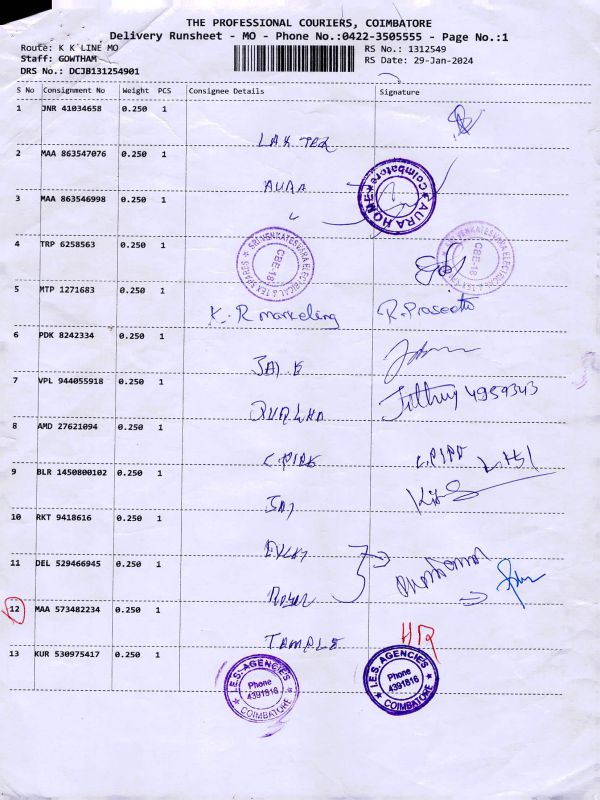 THE PROFESSIONAL COURIERS, COIMBATORE
Delivery Runsheet - MO - Phone No.:0422-3505555 - Page No.:1
Route: K K LINE MO
RS No.: 1312549
Staff: GOWTHAM
RS Date: 29-Jan-2024
DRS No.: DCJB131254901
S No Consignment No Weight PCS Consignee Details Signature
1 JNR 41034658 0.250 1
LAK TEX
2 MAA 863547076 0.250 1
AURA
AURA HOME Coimbatore
3 MAA 863546998 0.250 1
4 TRP 6258563 0.250 1
SRI VENKATESWARA ELECTRICAL & TEX SPARES CBE-18
SRI VENKATESWARA ELECTRICAL & TEX SPARES CBE-18
5 MTP 1271683 0.250 1
K. R marketing R. Praseetha
6 PDK 8242334 0.250 1
JAI K
7 VPL 944055918 0.250 1
4959343
8 AMD 27621094 0.250 1
9 BLR 1450800102 0.250 1
JAI
10 RKT 9418616 0.250 1
11 DEL 529466945 0.250 1
12 MAA 573482234 0.250 1
TEMPLE HR
13 KUR 530975417 0.250 1
I.E.S. AGENCIES Phone 4391816 COIMBATORE
I.E.S. AGENCIES Phone 4391816 COIMBATORE